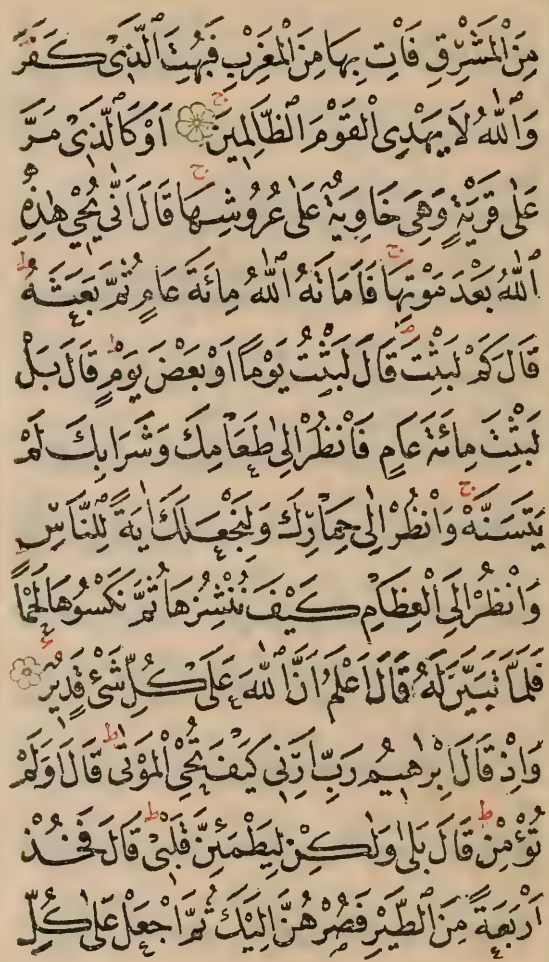 مِنَ الْمَشْرِقِ فَأْتِ بِهَا مِنَ الْمَغْرِبِ فَبُهِتَ الَّذِى كَفَرَ
وَاللّٰهُ لَا يَهْدِى الْقَوْمَ الظَّالِمِينَ ۝ اَوْ كَالَّذِى مَرَّ
عَلٰى قَرْيَةٍ وَهِىَ خَاوِيَةٌ عَلٰى عُرُوشِهَا قَالَ اَنّٰى يُحْيِ هٰذِهِ
اللّٰهُ بَعْدَ مَوْتِهَا فَاَمَاتَهُ اللّٰهُ مِائَةَ عَامٍ ثُمَّ بَعَثَهُ
قَالَ كَمْ لَبِثْتَ قَالَ لَبِثْتُ يَوْمًا اَوْ بَعْضَ يَوْمٍ قَالَ بَلْ
لَبِثْتَ مِائَةَ عَامٍ فَانْظُرْ اِلٰى طَعَامِكَ وَشَرَابِكَ لَمْ
يَتَسَنَّهْ وَانْظُرْ اِلٰى حِمَارِكَ وَلِنَجْعَلَكَ اٰيَةً لِلنَّاسِ
وَانْظُرْ اِلَى الْعِظَامِ كَيْفَ نُنْشِزُهَا ثُمَّ نَكْسُوهَا لَحْمًا
فَلَمَّا تَبَيَّنَ لَهُ قَالَ اَعْلَمُ اَنَّ اللّٰهَ عَلٰى كُلِّ شَىْءٍ قَدِيرٌ ۝
وَاِذْ قَالَ اِبْرٰهٖيمُ رَبِّ اَرِنِى كَيْفَ تُحْيِ الْمَوْتٰى قَالَ اَوَلَمْ
تُؤْمِنْ قَالَ بَلٰى وَلٰكِنْ لِيَطْمَئِنَّ قَلْبِى قَالَ فَخُذْ
اَرْبَعَةً مِنَ الطَّيْرِ فَصُرْهُنَّ اِلَيْكَ ثُمَّ اجْعَلْ عَلٰى كُلِّ